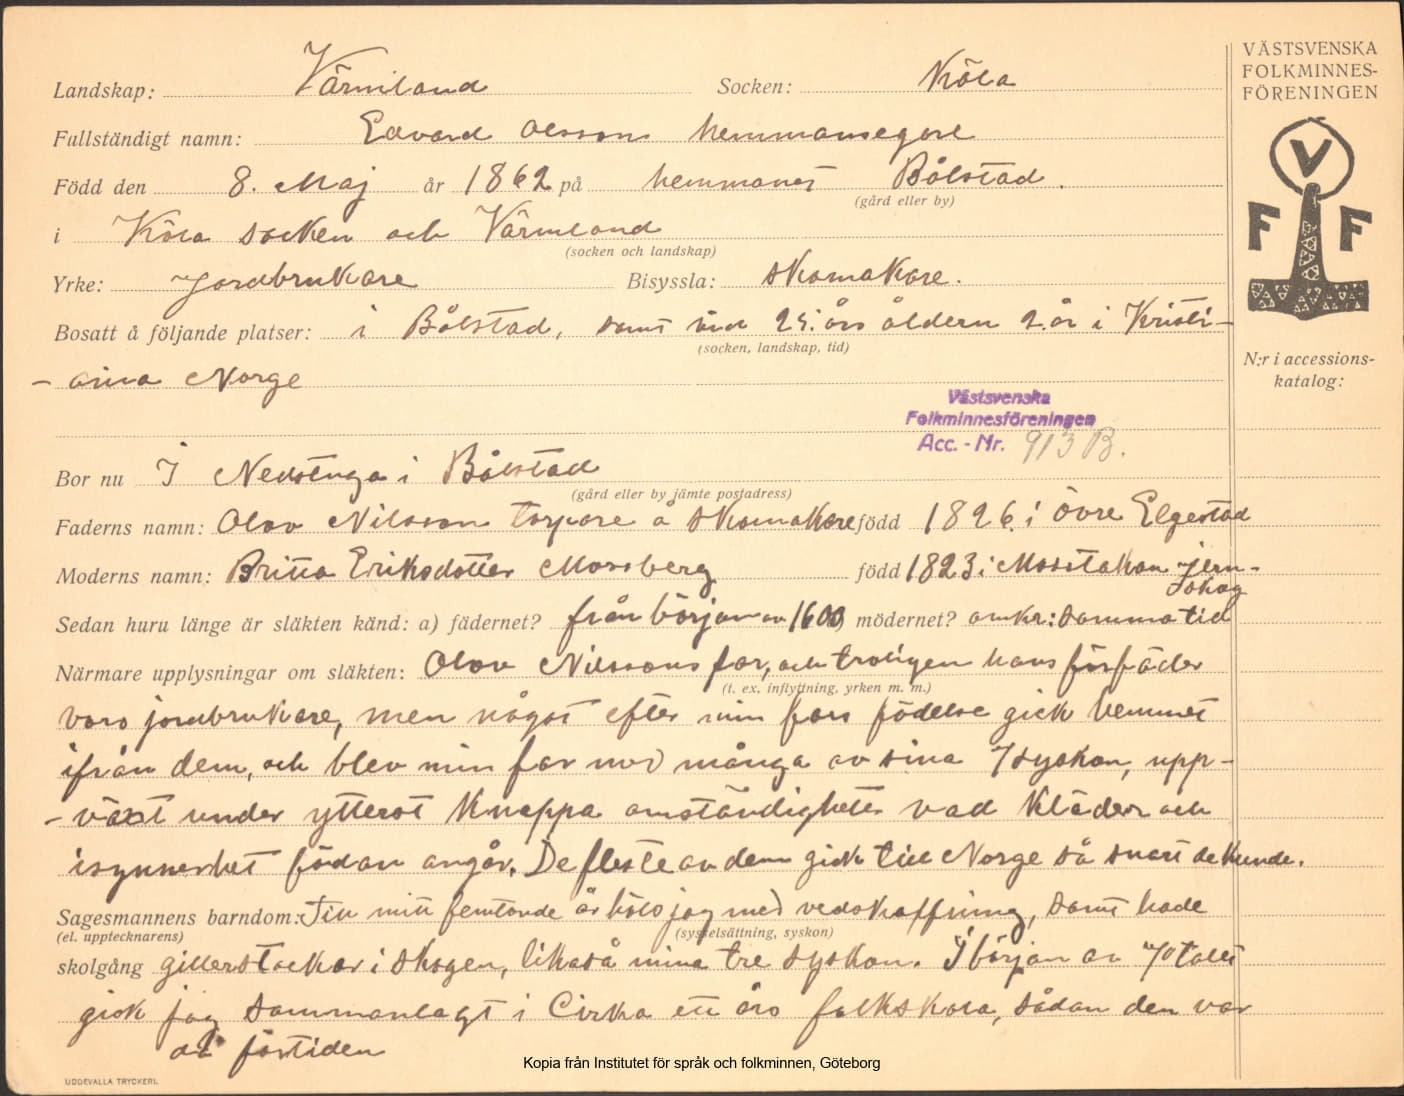 Landskap: Värmland Socken: Köla
VÄSTSVENSKA
FOLKMINNES-
FÖRENINGEN
Fullständigt namn: Edvard Olsson hemmansegare
V
F F
Född den 8. Maj år 1862 på hemmanet Bålstad.
(gård eller by)
i Köla socken och Värmland
(socken och landskap)
Yrke: Jordbrukare Bisyssla: skomakare.
Bosatt å följande platser: i Bålstad, samt vid 25. års åldern 2 år i Kristi-
(socken, landskap, tid)
- ania Norge
N:r i accessions-
katalog:
Västsvenska
Folkminnesföreningen
Acc. - Nr. 913 B.
Bor nu I Nedstuga i Bålstad
(gård eller by jämte postadress)
Faderns namn: Olov Nilsson torpare å skomakare född 1826 i Övre Elgestad
Moderns namn: Britta Eriksdotter Mossberg född 1823 i Mosstakan jern-
skog
Sedan huru länge är släkten känd: a) fädernet? från början av 1600 mödernet? omkr: samma tid
Närmare upplysningar om släkten: Olov Nilssons far, och troligen hans förfäder
(t. ex. inflyttning, yrken m. m.)
voro jordbrukare, men något efter min fars födelse gick hemmet
ifrån dem, och blev min far med många av sina 7 syskon, upp-
- växt under ytterst knappa omständigheter vad kläder och
isynnerhet födan angår. De fleste av dem gick till Norge så snart de kunde.
Sagesmannens barndom: Till mitt femtonde år höls jag med vedskaffning, samt hade
(el. upptecknarens) (sysselsättning, syskon)
skolgång gillerstockar i skogen, likaså mina tre syskon. I början av 70 talet
gick jag sammanlagt i Cirka ett års folkskola, sådan den var
då förtiden
Kopia från Institutet för språk och folkminnen, Göteborg
UDDEVALLA TRYCKERI.